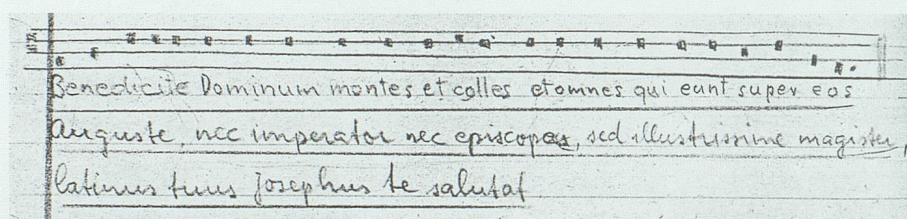 Benedicite Dominum montes et colles et omnes qui eunt super eos
Auguste, nec imperator nec episcopus, sed illustrissime magister,
latinus tuus Josephus te salutat